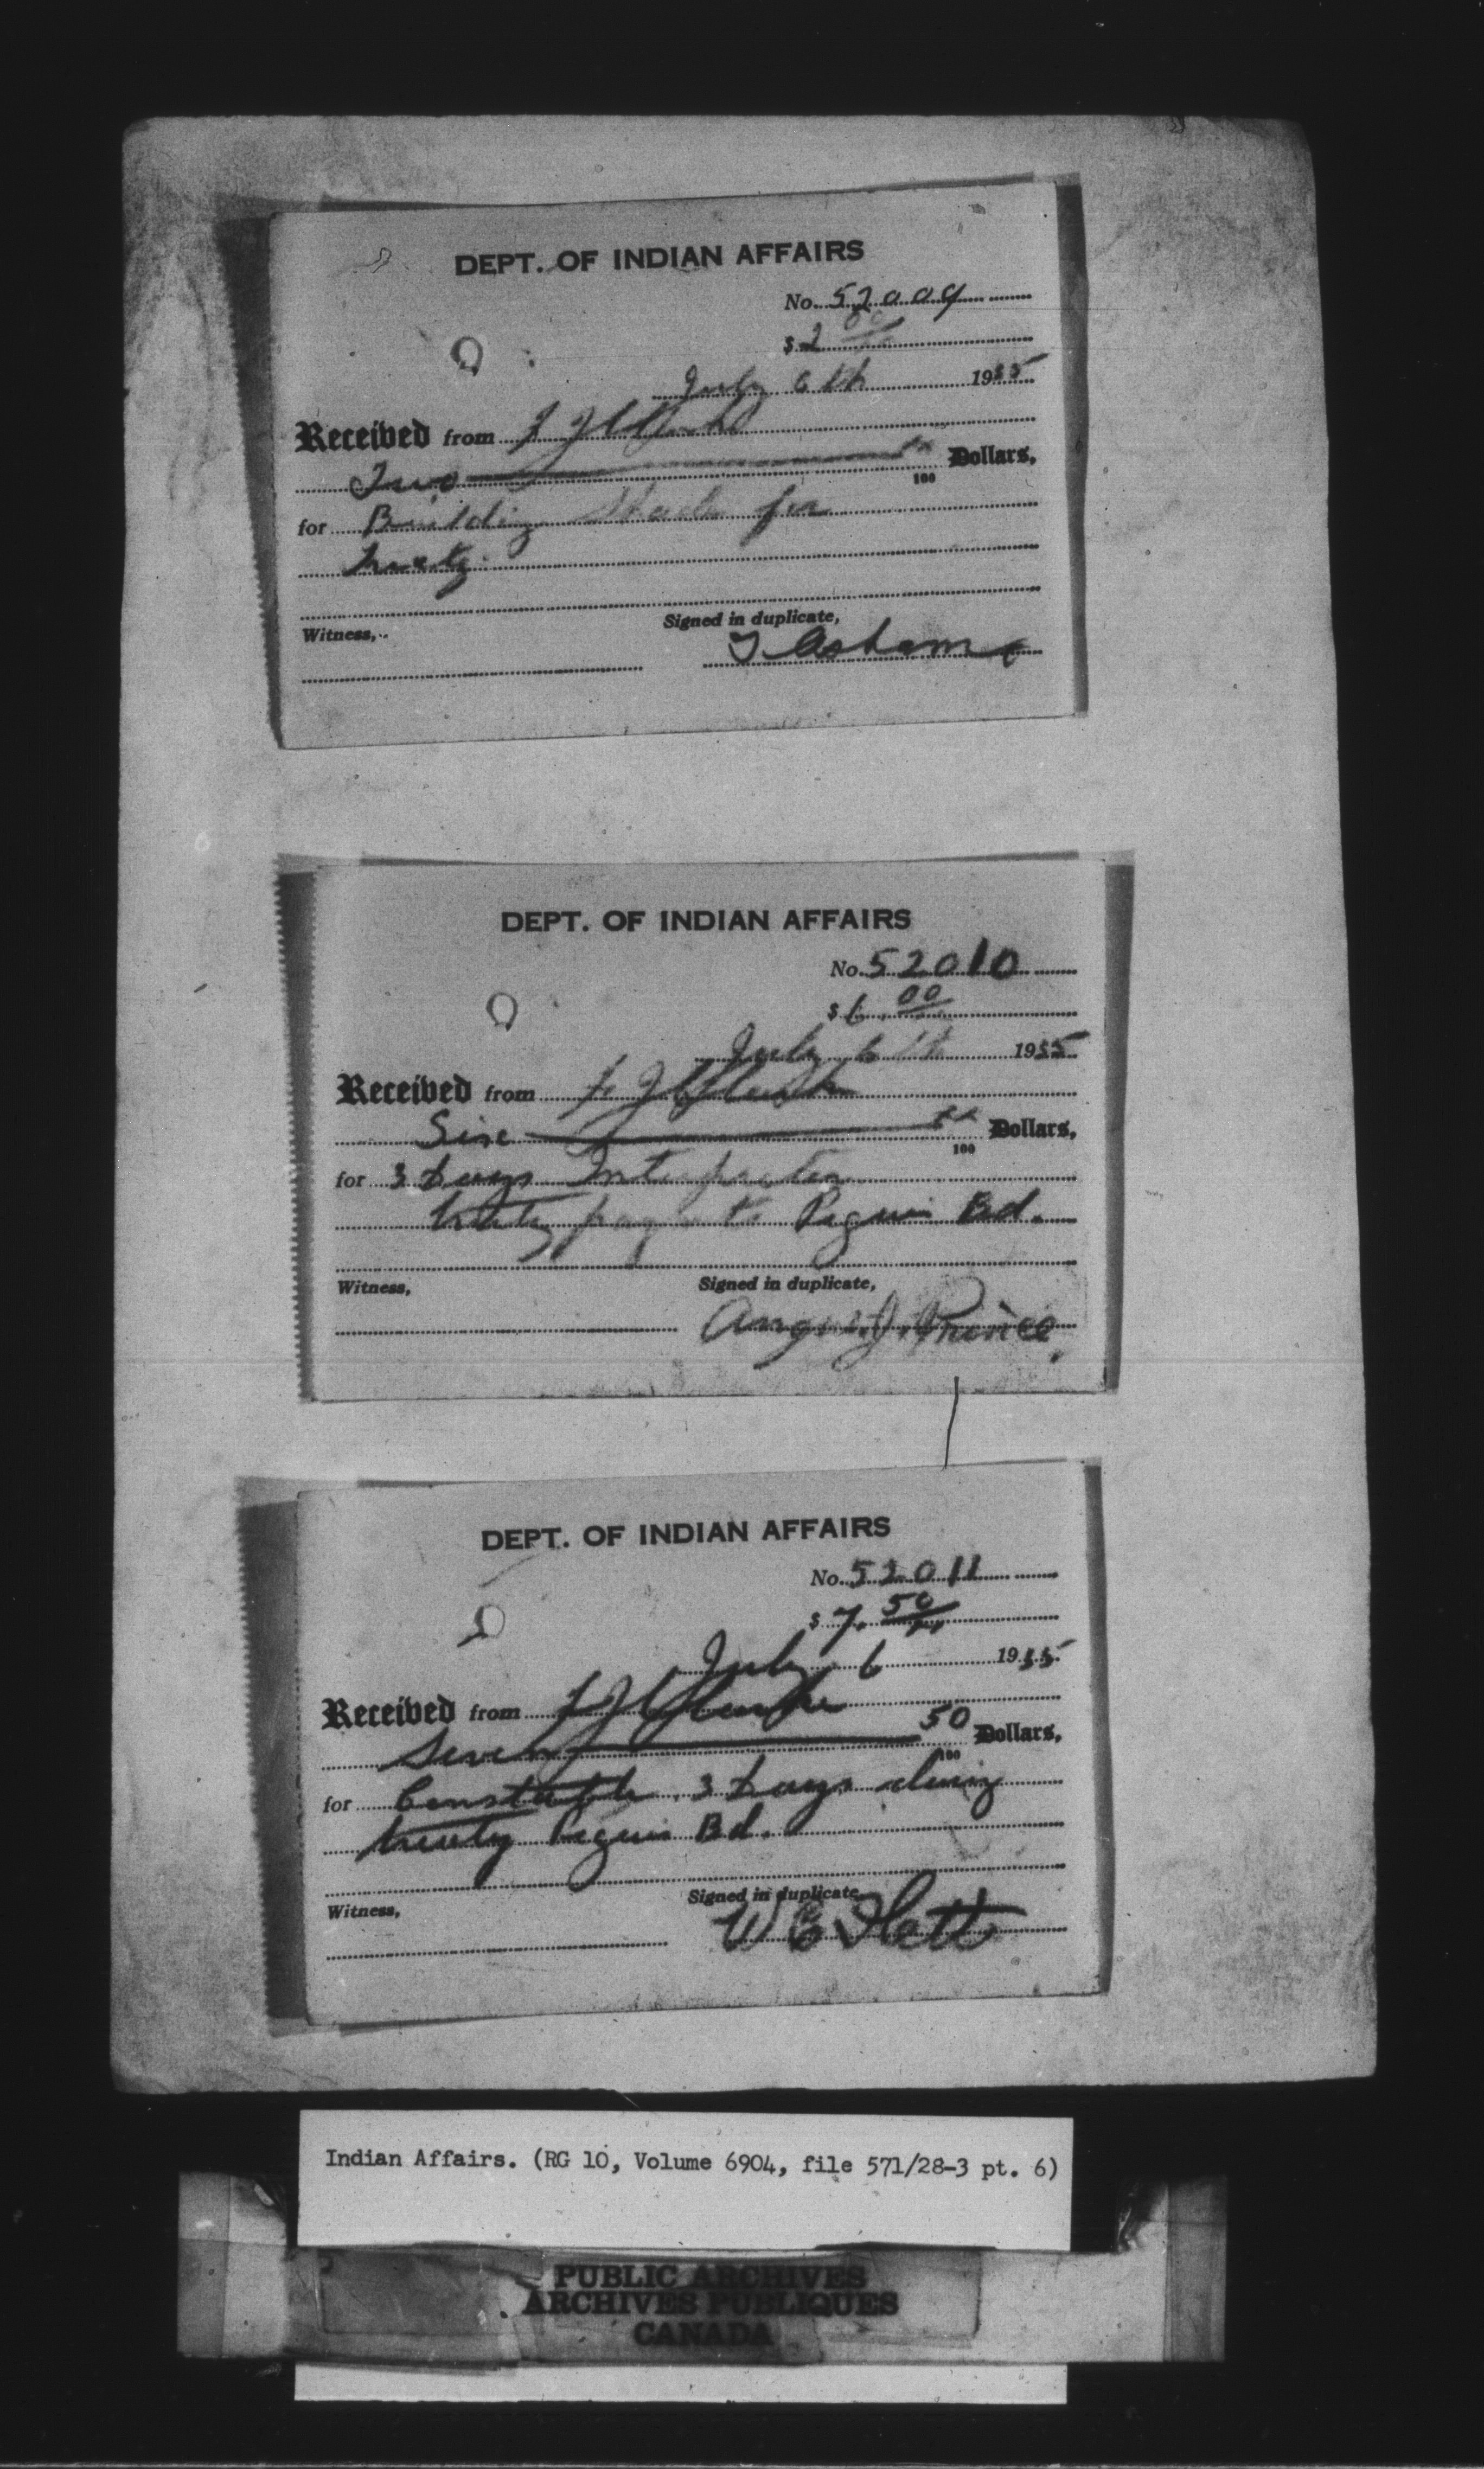 DEPT. OF INDIAN AFFAIRS
No. 52009
$ 2 00
July 6th 1935
Received from
Two Dollars,
100
for Building for
treaty
Witness,
Signed in duplicate,
T Asham
DEPT. OF INDIAN AFFAIRS
No. 52010
$ 6.00
July 6th 1935
Received from
Six Dollars,
100
for 3 Days Interpreter
treaty Peguis Bd.
Witness,
Signed in duplicate,
Angus J. Prince
DEPT. OF INDIAN AFFAIRS
No. 52011
$ 7.50
July 6 1935
Received from
Seven 50 Dollars,
100
for Constable 3 Days during
treaty Peguis Bd.
Witness,
Signed in duplicate
W C Flett
Indian Affairs. (RG 10, Volume 6904, file 571/28-3 pt. 6)
PUBLIC ARCHIVES
ARCHIVES PUBLIQUES
CANADA